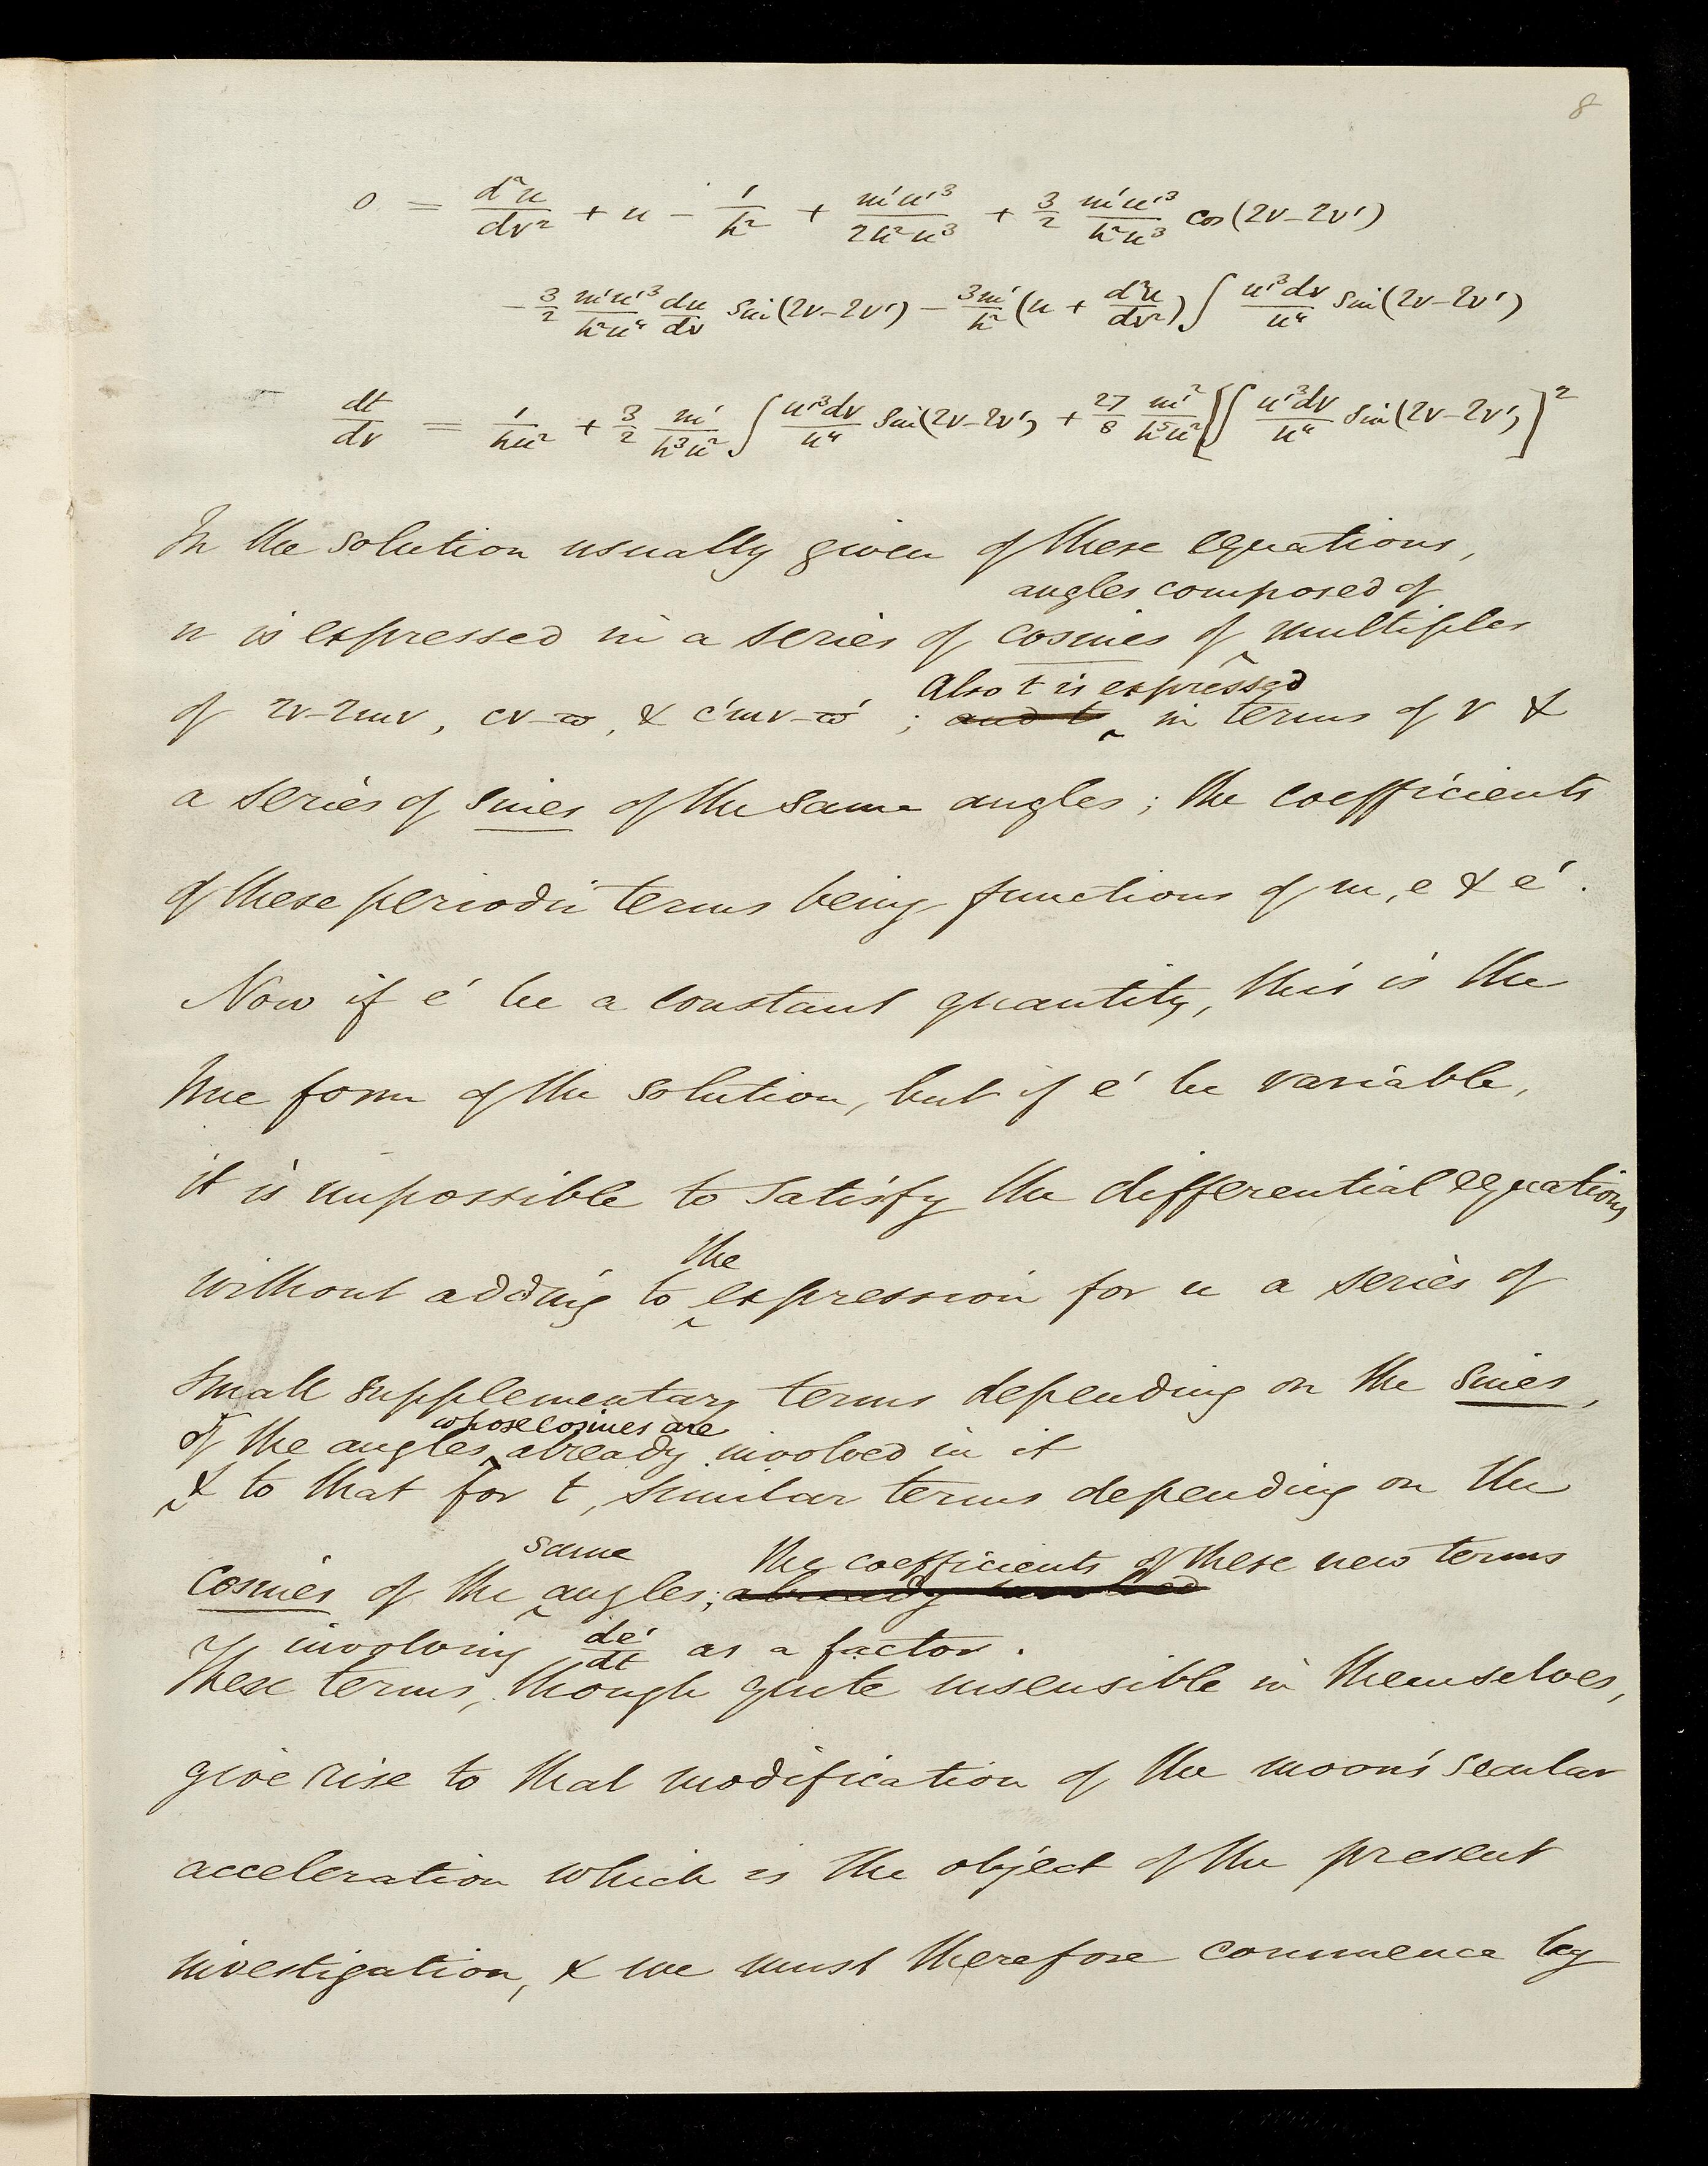 8
0 = d²u/dν² + u − 1/h² + m'u'³/2h²u³ + 3/2 m'u'³/h²u³ cos(2ν−2ν')
− 3/2 m'u'³/h²u⁴ du/dν sin(2ν−2ν') − 3m'/h² (u + d²u/dν²) ∫ u'³dν/u⁴ sin(2ν−2ν')
dt/dν = 1/hu² + 3/2 m'/h³u² ∫ u'³dν/u⁴ sin(2ν−2ν') + 27/8 m'²/h⁵u² [∫ u'³dν/u⁴ sin(2ν−2ν')]²
In the solution usually given of these equations,
angles composed of
u is expressed in a series of cosines of ‸ multiples
Also t is expressed
of 2ν−2mν, cν−ϖ, & c'mν−ϖ' ; and t ‸ in terms of ν &
a series of sines of the same angles; the coefficients
of these periodic terms being functions of m, e & e'.
Now if e' be a constant quantity, this is the
true form of the solution, but if e' be variable,
it is impossible to satisfy the differential equations
the
without adding to ‸ expression for u a series of
small supplementary terms depending on the sines,
whose cosines are
of the angles ‸ already involved in it
‸ & to that for t, similar terms depending on the
same the coefficients of these new terms
cosines of the ‸ angles; already involved
involving de'/dt as a factor.
These terms, though quite insensible in themselves,
give rise to that modification of the moon's secular
acceleration which is the object of the present
investigation, & we must therefore commence by